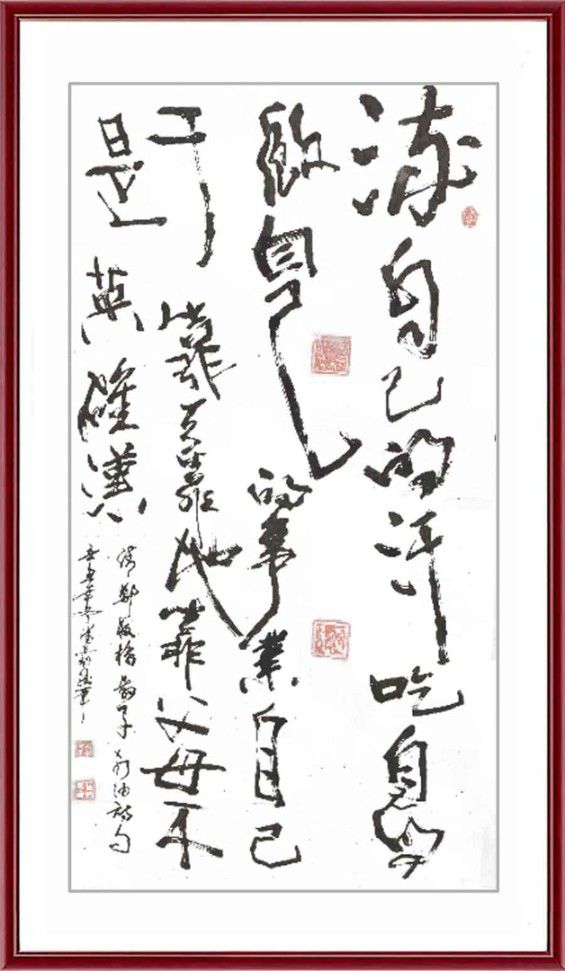 流自己的汗吃自己的
饭自己的事业自己
干靠天靠地靠父母不
是英雄汉
清郑板桥教子打油诗句